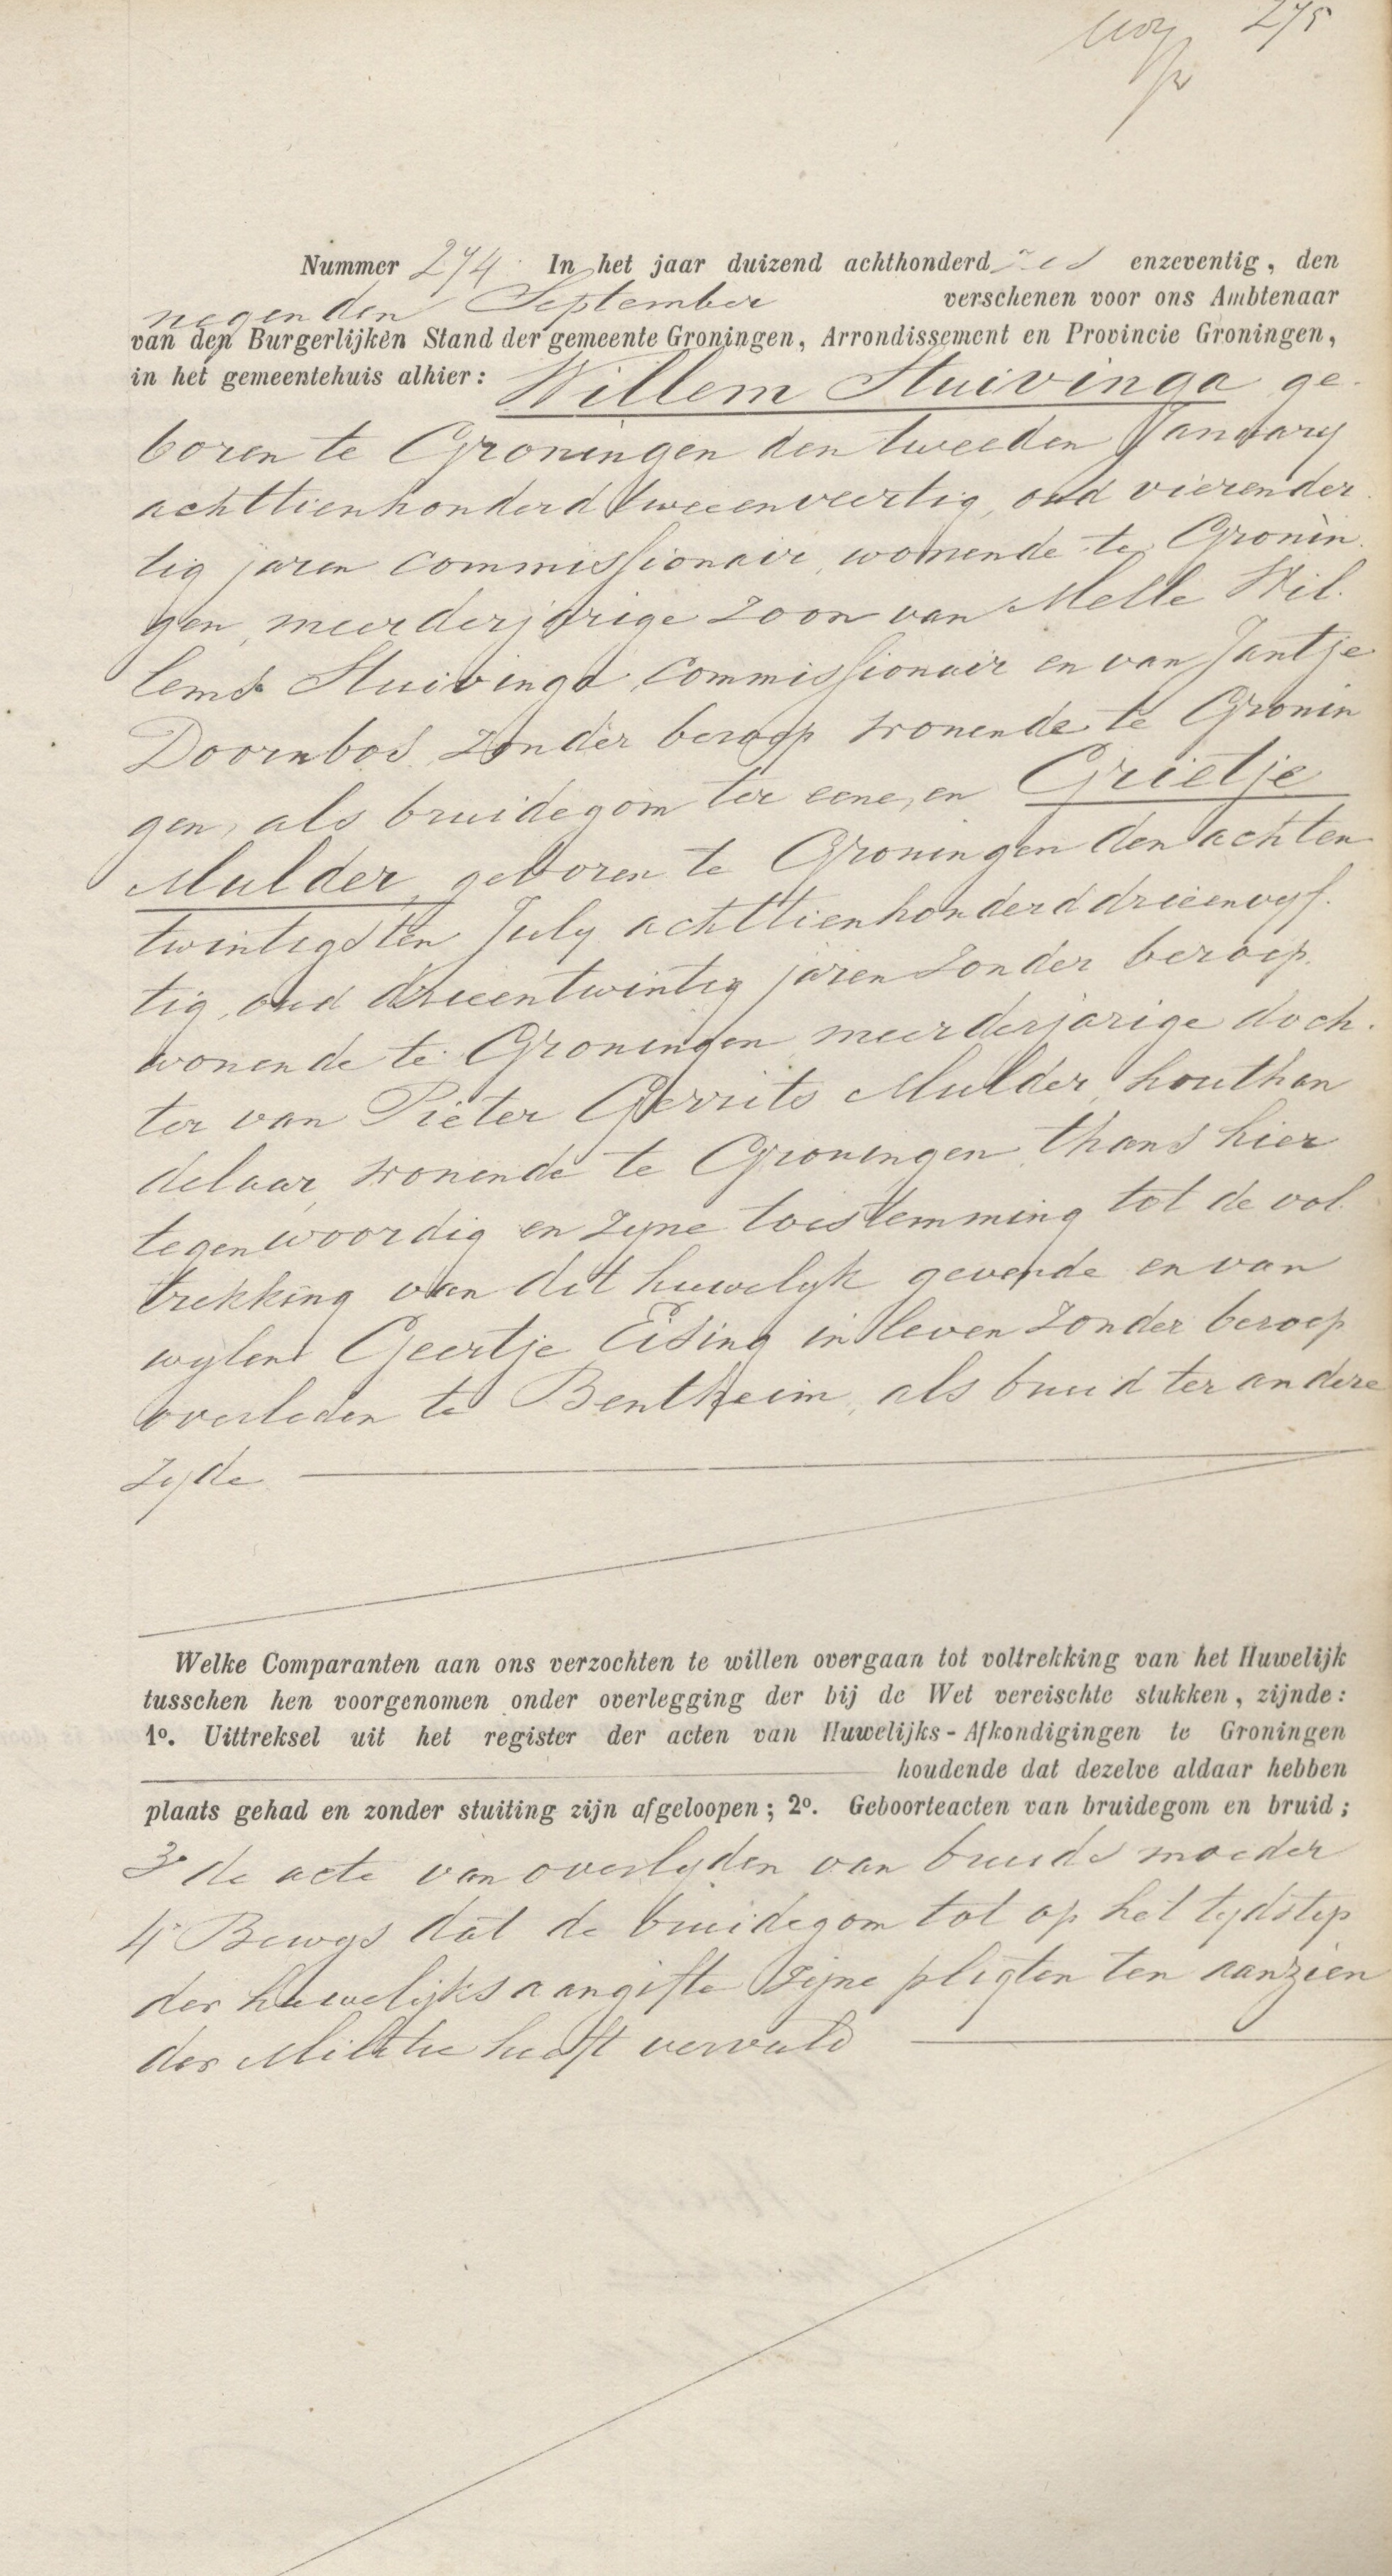 275
Nummer 274. In het jaar duizend achthonderd zes enzeventig, den
negenden September verschenen voor ons Ambtenaar
van den Burgerlijken Stand der gemeente Groningen, Arrondissement en Provincie Groningen,
in het gemeentehuis alhier: Willem Stuivinga ge-
boren te Groningen den tweeden January
achttienhonderd tweeenveertig, oud vierender-
tig jaren commissionair, wonende te Gronin-
gen, meerderjarige zoon van Melle Wil-
lems Stuivinga, commissionair en van Jantje
Doornbos, zonder beroep wonende te Gronin
gen, als bruidegom ter eene, en Grietje
Mulder, geboren te Groningen den achten
twintigsten July achttienhonderd drieenvyf-
tig, oud drieentwintig jaren zonder beroep,
wonende te Groningen meerderjarige doch-
ter van Pieter Gerrits Mulder, houthan
delaar, wonende te Groningen, thans hier
tegenwoordig en zyne toestemming tot de vol-
trekking van dit huwelyk gevende en van
wylen Geertje Eising in leven zonder beroep
overleden te Bentheim, als bruid ter andere
zyde
Welke Comparanten aan ons verzochten te willen overgaan tot voltrekking van het Huwelijk
tusschen hen voorgenomen onder overlegging der bij de Wet vereischte stukken, zijnde:
1o. Uittreksel uit het register der acten van Huwelijks-Afkondigingen te Groningen
houdende dat dezelve aldaar hebben
plaats gehad en zonder stuiting zijn afgeloopen; 2o. Geboorteacten van bruidegom en bruid;
3o de acte van overlyden van bruids moeder
4o Bewys dat de bruidegom tot op het tydstip
der huwelijksaangifte zijne pligten ten aanzien
der Militie heeft vervuld